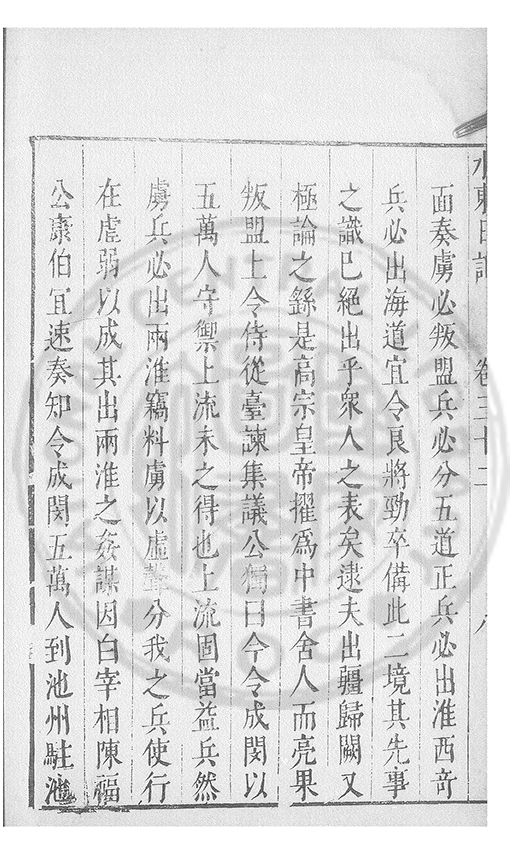 水東日記 卷三十二 八
面奏虜必叛盟兵必分五道正兵必出淮西奇
兵必出海道宜令良將勁卒備此二境其先事
之識已絕出乎衆人之表矣逮夫出疆歸闕又
極論之繇是高宗皇帝擢爲中書舍人而亮果
叛盟上令侍從臺諫集議公獨曰今令成閔以
五萬人守禦上流未之得也上流固當益兵然
虜兵必出兩淮竊料虜以虛聲分我之兵使行
在虛弱以成其出兩淮之姦謀因白宰相陳福
公康伯宜速奏知令成閔五萬人到池州駐池
CENTRAL